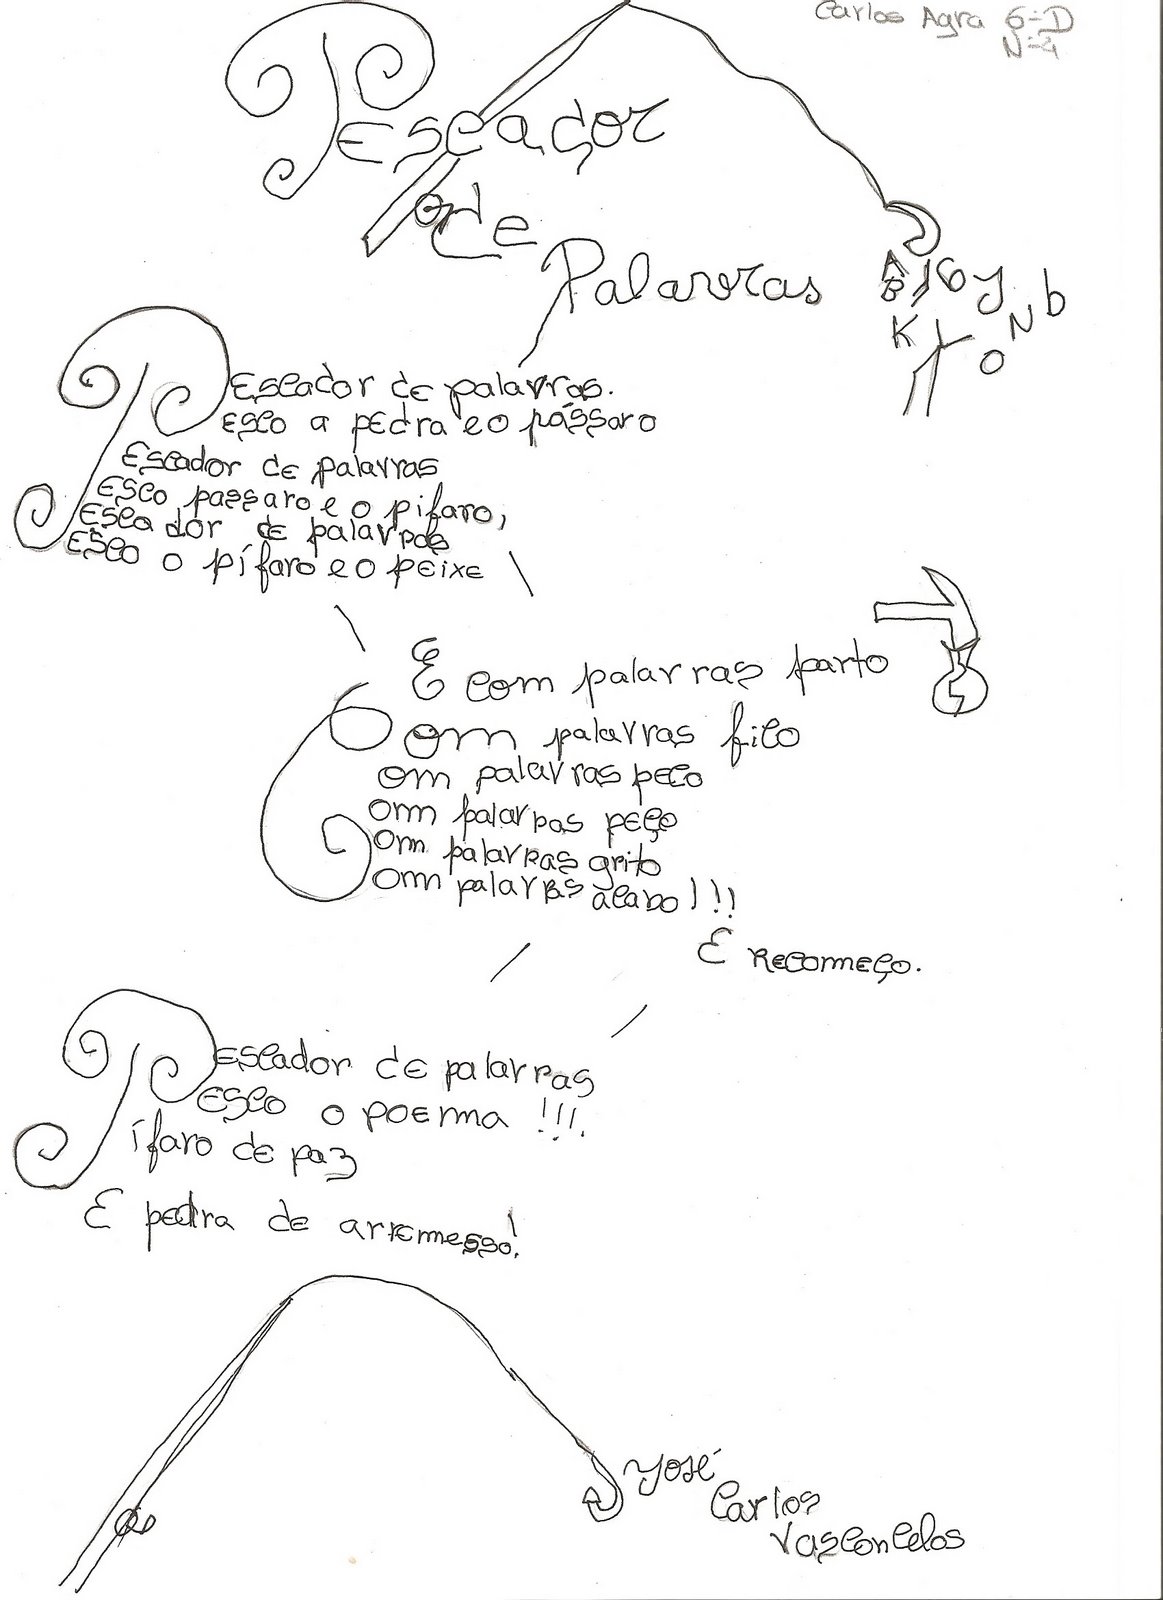 Carlos Agra 6-D
N-4
Pescador
de
Palavras
Pescador de palavras.
Pesco a pedra e o pássaro
Pescador de palavras
Pesco passaro e o pífaro,
Pescador de palavras
Pesco o pífaro e o peixe
E com palavras parto
Com palavras fico
Com palavras peco
Com palavras peço
Com palavras grito
Com palavras acabo!!!
E recomeço.
Pescador de palavras
Pesco o poema!!!
Pífaro de paz
E pedra de arremesso!
José
Carlos
Vasconcelos